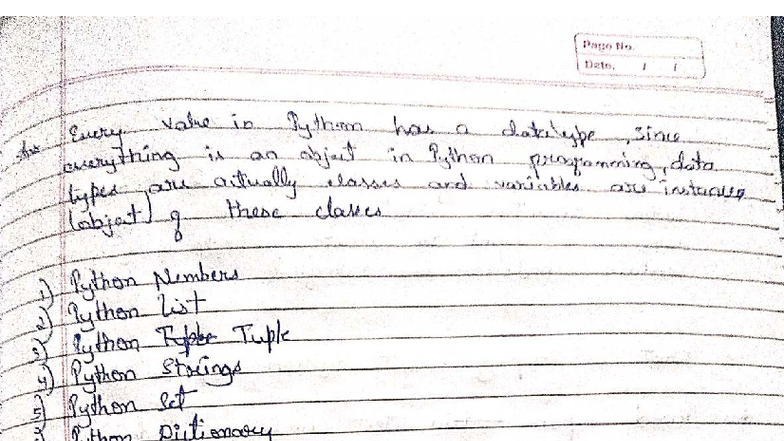 Page No.
Date. / /
Ans Every value in Python has a datatype, since
everything is an object in Python programming, data
types are actually classes and variables are instances
(object) of these classes
1) Python Numbers
2) Python List
3) Python Tuple
4) Python Strings
5) Python Set
Python Dictionary